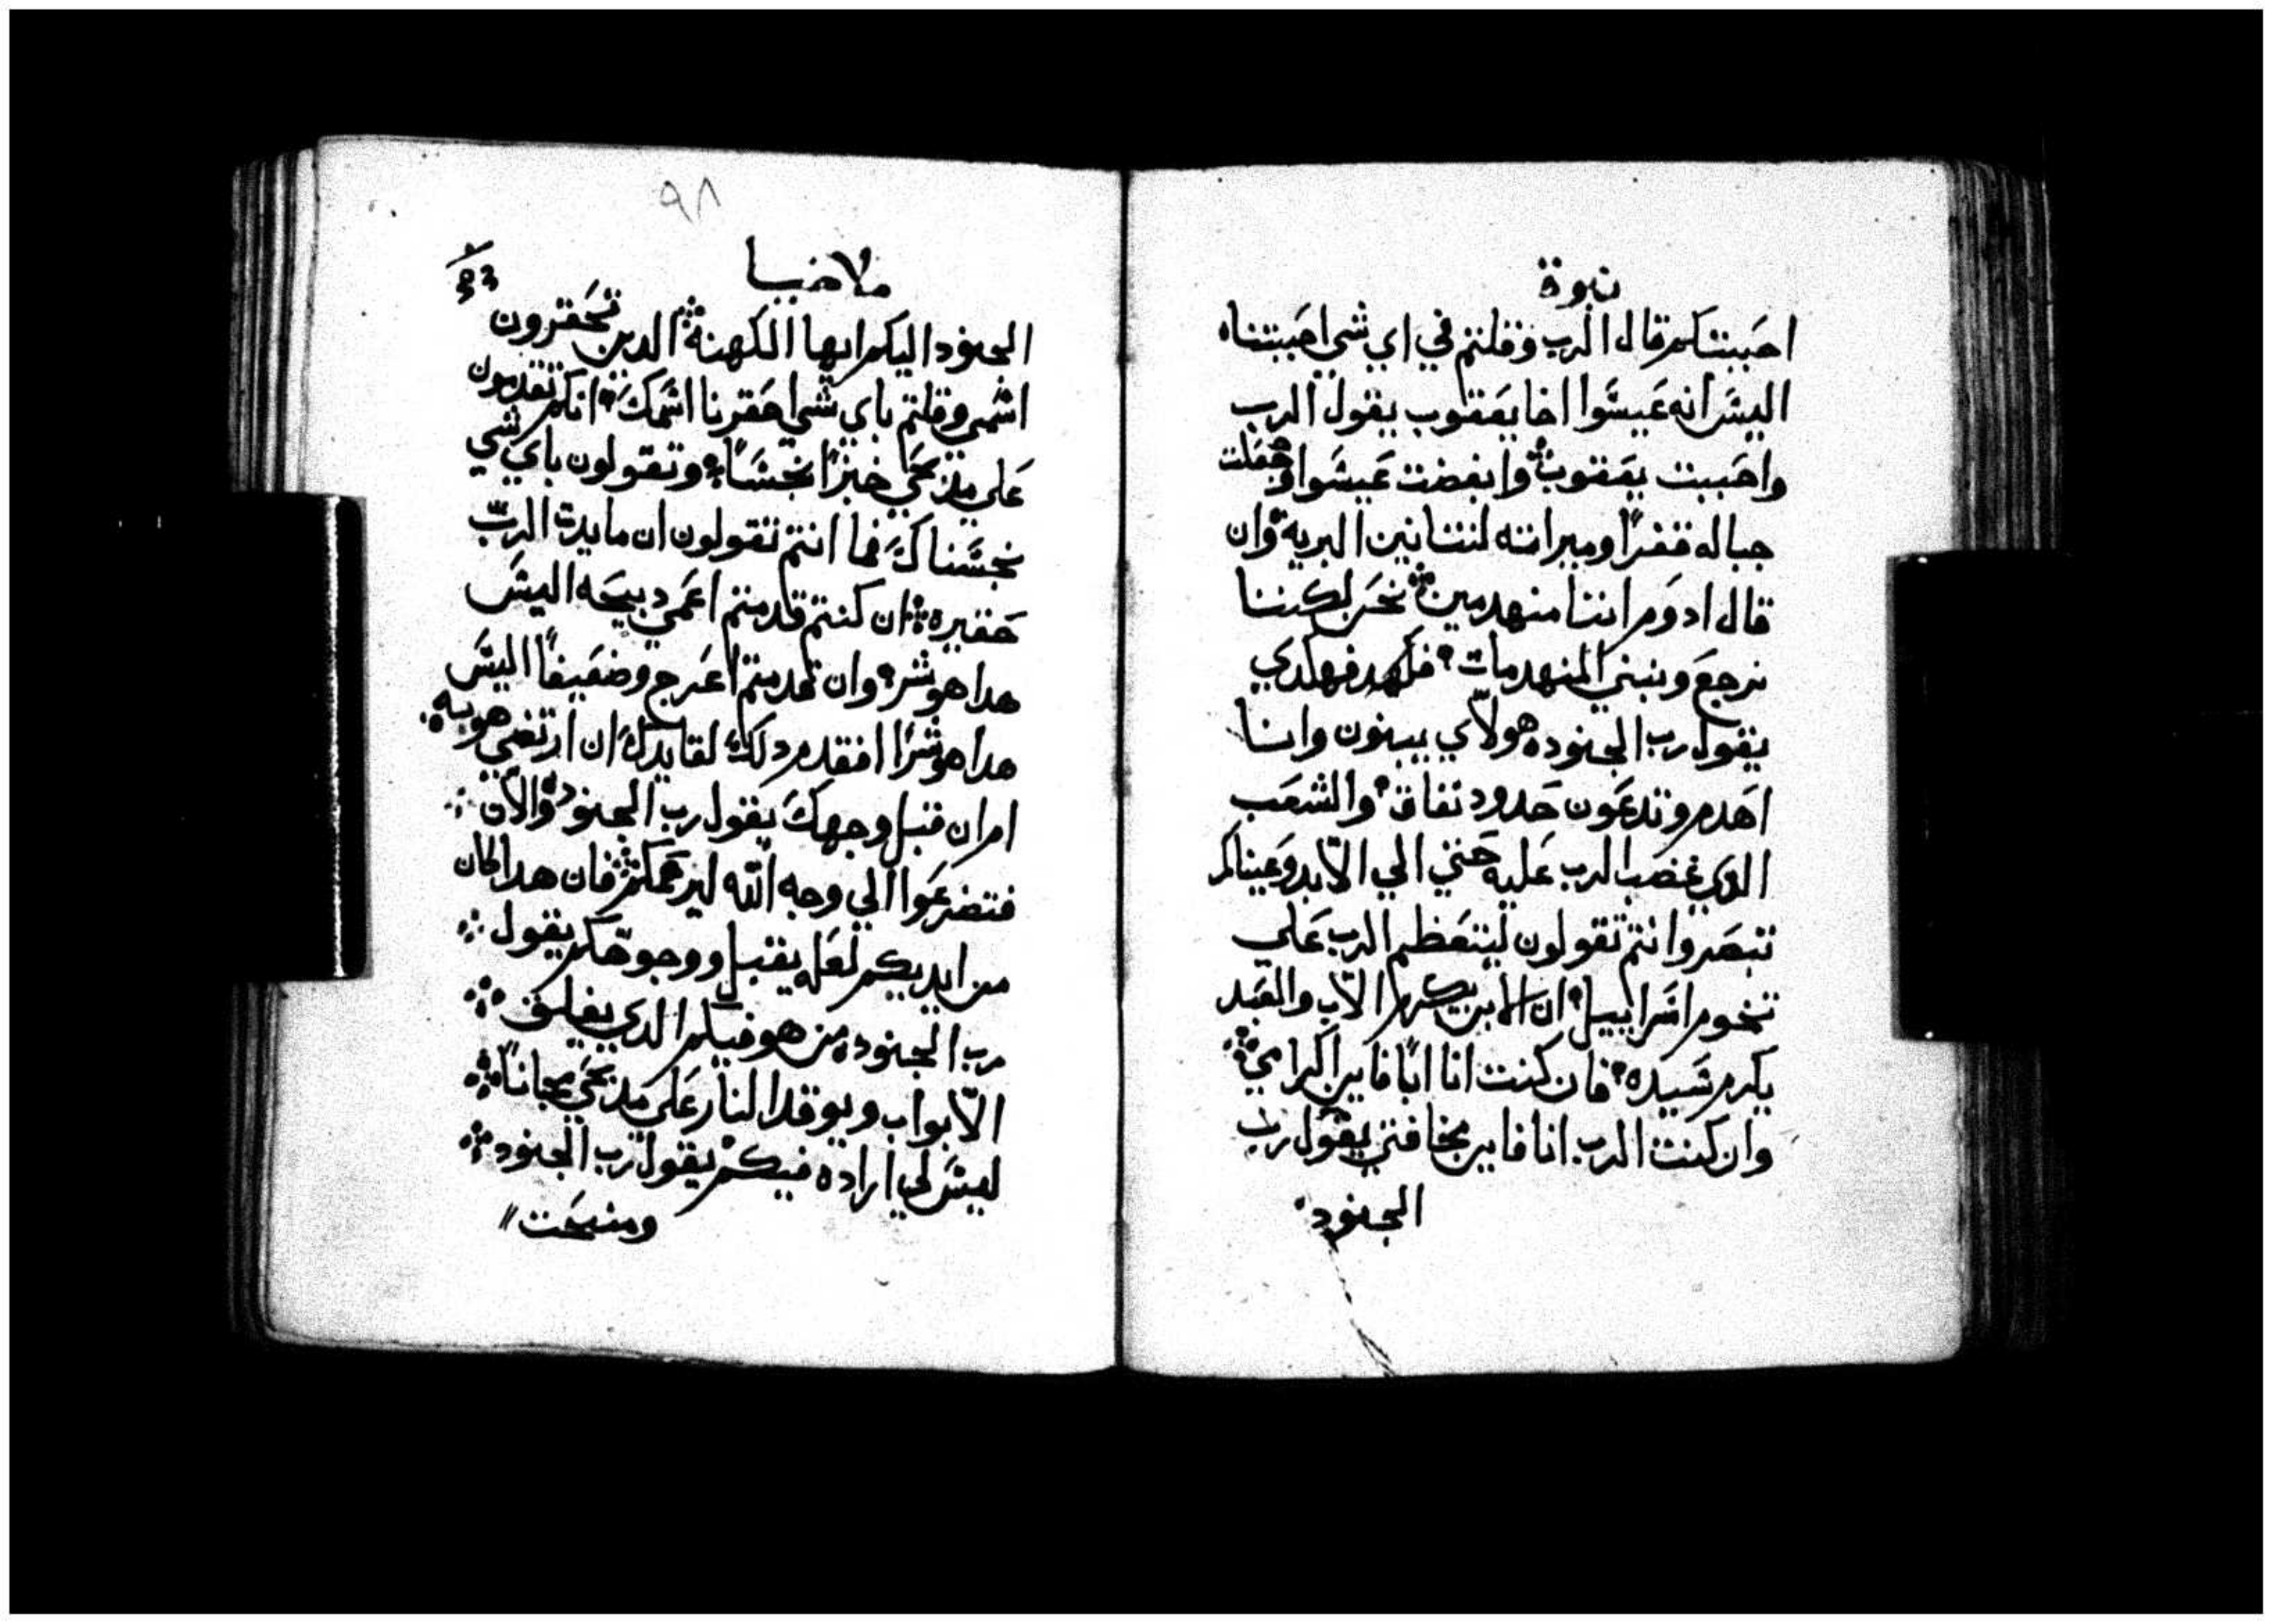 نبوة
احببتكم قال الرب وقلتم في اي شي احببتناه
اليس انه عيسوا اخا يعقوب يقول الرب
واحببت يعقوب وابغضت عيسوا وجعلت
جباله قفرًا وميراته لتنانين البريه وان
قال ادوم اننا منهدمين نحن لكننا
نرجع ونبني المنهدمات
يقول رب الجنود هولاي يبنون وانا
اهدم وتدعون حدود نفاق والشعب
الدي غضب الرب عليه حتي الي الابد وعيناكم
تبصر وانتم تقولون ليتعظم الرب علي
تخوم اسراييل ان الابن يكرم الاب والعبد
يكرم سيده فان كنت انا ابًا فاين اكرامي
وان كنت الرب انا فاين مخافتي يقول رب
الجنود
٩٨
ملاخيا
الجنود اليكم ايها الكهنة الدين تحقرون
اسمي وقلتم باي شي احقرنا اسمك انكم تقدمون
علي مدبحي خبزًا نجسًا وتقولون باي شي
نجسناك فما انتم تقولون ان مايدة الرب
حقيره ان كنتم قدمتم اعمي دبيحه اليس
هدا هو شر وان قدمتم اعرج وضعيفًا اليس
هدا هو شرًا افقدم دلك لقايدك ان ارتضي هو به
ام ان قبل وجهك يقول رب الجنود والان
فتضرعوا الي وجه الله ليرحمكم فان هدا كان
من ايديكم لعله يقبل ووجوهكم يقول
رب الجنود من هو فيكم الدي يغلق
الابواب ويوقد النار علي مدبحي مجانًا
ليس لي اراده فيكم يقول رب الجنود
ومنيحت